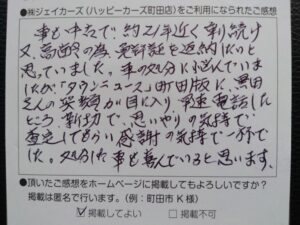 ●㈱ジェイカーズ（ハッピーカーズ町田店）をご利用になられたご感想
車も中古で、約21年近く乗り続け
又高令の為免許証を返納したいと
思っていました。車の処分に悩んでいま
したが「タウンニュース」町田版に、黒田
さんの笑顔が目に入り、早速電話した
ところ親切で、思いやりの気持で
査定してもらい感謝の気持で一杯で
した。処分した車も喜んでいると思います。
●頂いたご感想をホームページに掲載してもよろしいですか？
掲載は匿名で行います。（例：町田市 K 様）
☑掲載してよい　□掲載不可